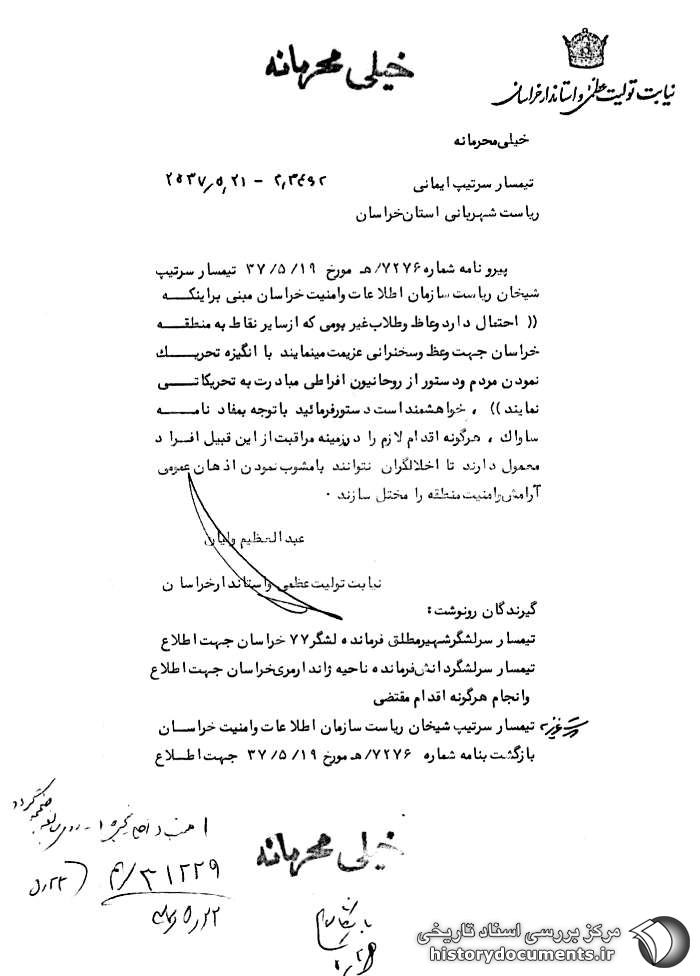 خیلی محرمانه
نیابت تولیت عظمی و استاندار خراسان
خیلی محرمانه
تیمسار سرتیپ ایمانی
۲۵۳۷/۵/۲۱ -
ریاست شهربانی استان خراسان
پیرو نامه شماره ۷۲۷۶/هـ مورخ ۳۷/۵/۱۹ تیمسار سرتیپ
شیخان ریاست سازمان اطلاعات وامنیت خراسان مبنی براینکه
(( احتمال دارد وعاظ وطلاب غیر بومی که ازسایر نقاط به منطقه
خراسان جهت وعظ وسخنرانی عزیمت مینمایند با انگیزه تحریک
نمودن مردم ودستور از روحانیون افراطی مبادرت به تحریکاتی
نمایند )) ، خواهشمند است دستورفرمائید باتوجه بمفاد نامه
ساواک ، هرگونه اقدام لازم را درزمینه مراقبت از این قبیل افراد
معمول دارند تا اخلالگران نتوانند بامشوب نمودن اذهان عمومی
آرامش وامنیت منطقه را مختل سازند .
عبدالعظیم ولیان
نیابت تولیت عظمی واستاندارخراسان
گیرندگان رونوشت :
تیمسار سرلشگرشهیرمطلق فرمانده لشگر ۷۷ خراسان جهت اطلاع
تیمسار سرلشگردانش فرمانده ناحیه ژاندارمری خراسان جهت اطلاع
وانجام هرگونه اقدام مقتضی
تیمسار سرتیپ شیخان ریاست سازمان اطلاعات وامنیت خراسان
بازگشت بنامه شماره ۷۲۷۶/هـ مورخ ۳۷/۵/۱۹ جهت اطلاع
خیلی محرمانه
۳۱۲۲۹
مرکز بررسی اسناد تاریخی
historydocuments.ir